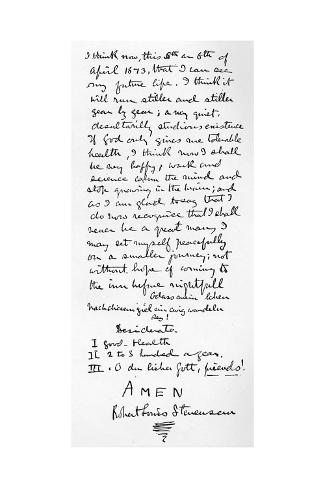 I think now, this 5th or 6th of
April 1873, that I can see
my future life. I think it
will run stiller and stiller
year by year; a very quiet,
desultorily studious existence.
If God only gives me tolerable
health, I think now I shall
be very happy; work and
science calm the mind and
stop gnawing in the brain; and
as I am glad to say that I
do now recognise that I shall
never be a great man, I
may set myself peacefully
on a smaller journey; not
without hope of coming to
the inn before nightfall
O dass mein leben
Nach diesem ziel ein ewig wandeln
sey!
Desiderata.
I good-Health
II 2 to 3 hundred a year.
III. O du lieber Gott, friends!
AMEN
Robert Louis Stevenson